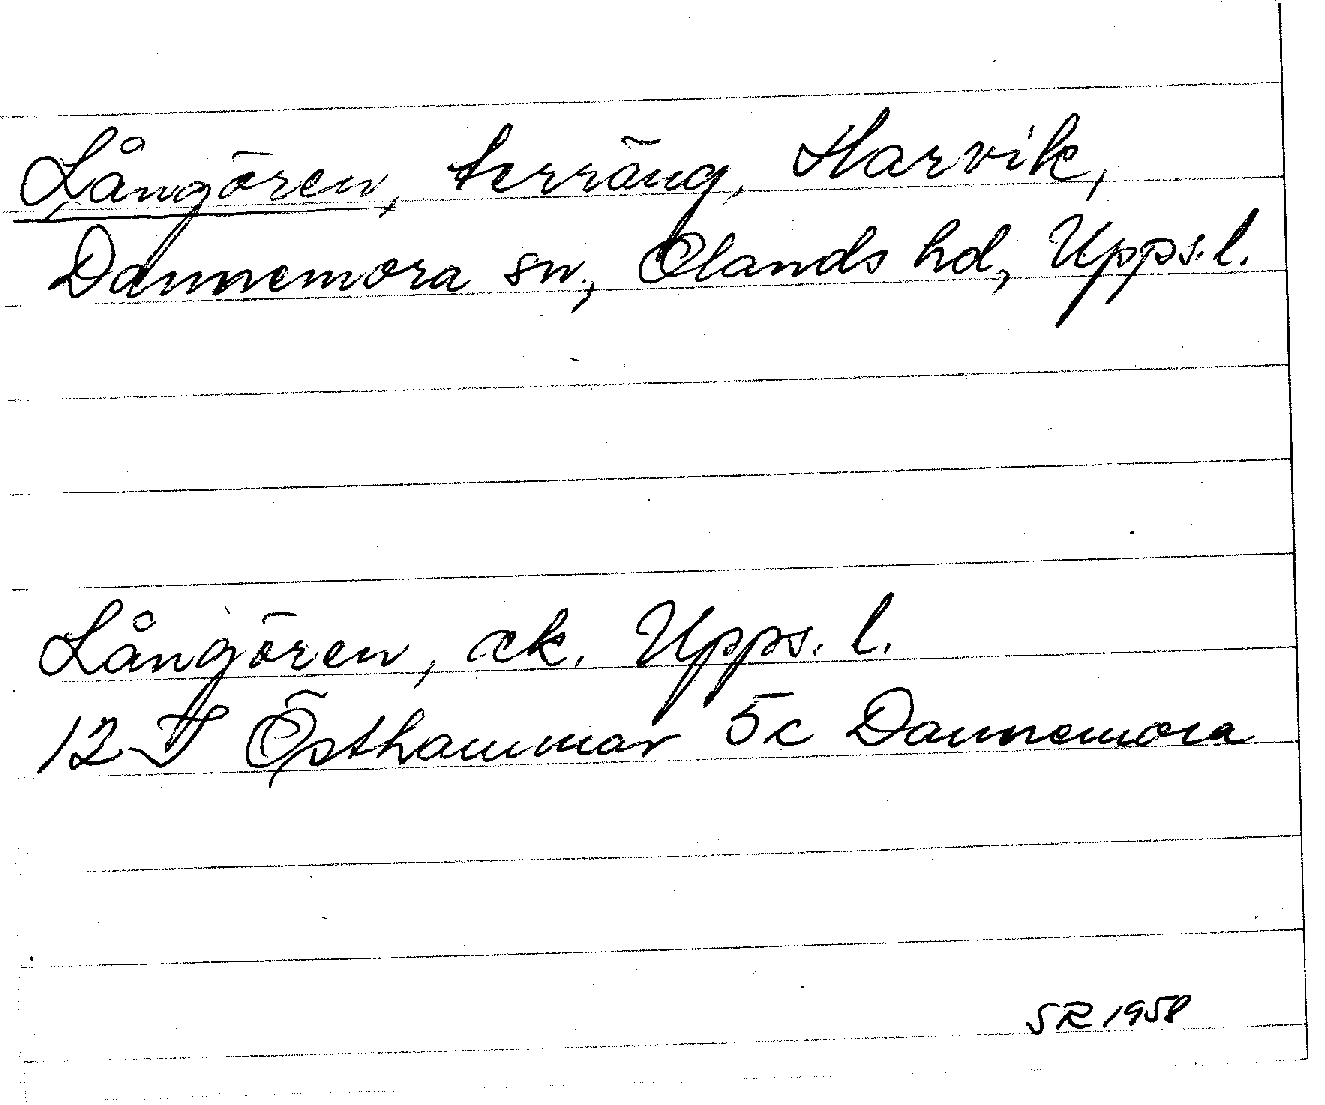 Långören, terräng, Harvik,
Dannemora sn, Olands hd, Upps. l.
Långören, ek. Upps. l.
12 I Östhammar 5c Dannemora
SR 1958